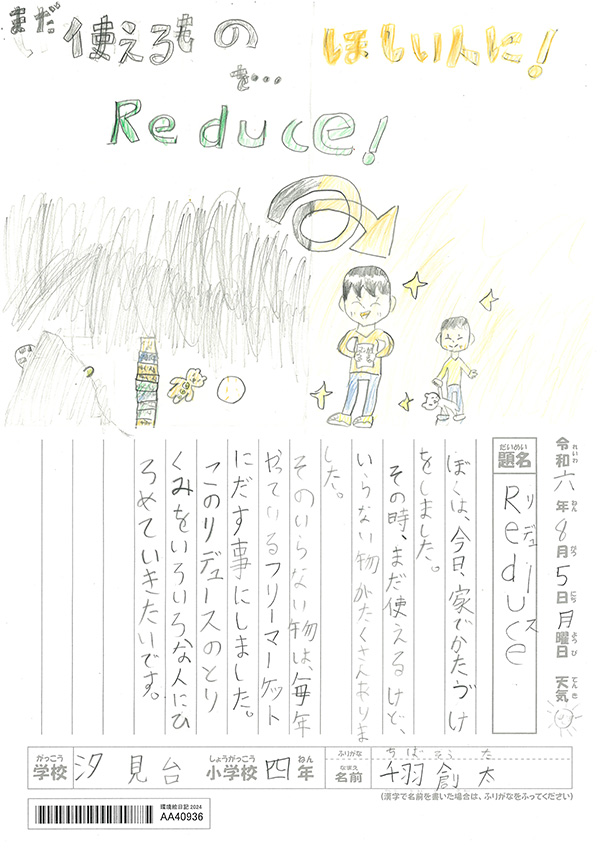 まだ使えるもの
を…
ほしい人に!
Reduce!
令和六年8月5日月曜日 天気
れいわ ねん がつ にち ようび てんき
だいめい
題名
Reduce
リデュース
ぼくは、今日、家でかたづけ
をしました。
その時、まだ使えるけど、
いらない物がたくさんありま
した。
そのいらない物は、毎年
やっているフリーマーケット
にだす事にしました。
このリデュースのとり
くみをいろいろな人にひ
ろめていきたいです。
がっこう しょうがっこう ねん
学校 汐見台 小学校 四年
ふりがな ちばそうた
なまえ
名前 千羽創太
(漢字で名前を書いた場合は、ふりがなをふってください)
環境絵日記 2024
AA40936